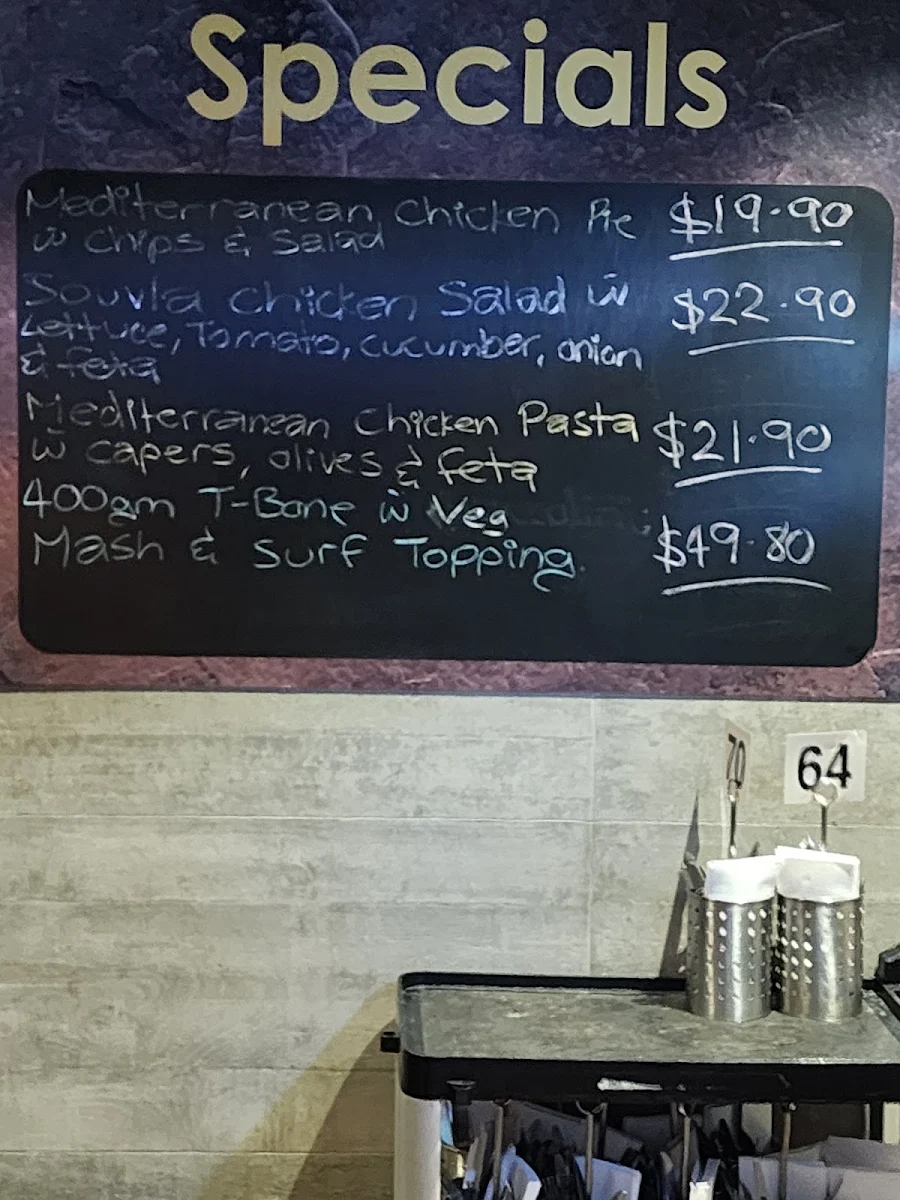 Specials
Mediterranean Chicken Pie $19.90
w Chips & Salad
Souvla Chicken Salad w $22.90
Lettuce, Tomato, cucumber, onion
& feta
Mediterranean Chicken Pasta $21.90
w capers, olives & feta
400gm T-Bone w Veg
Mash & Surf Topping $49.80
70
64